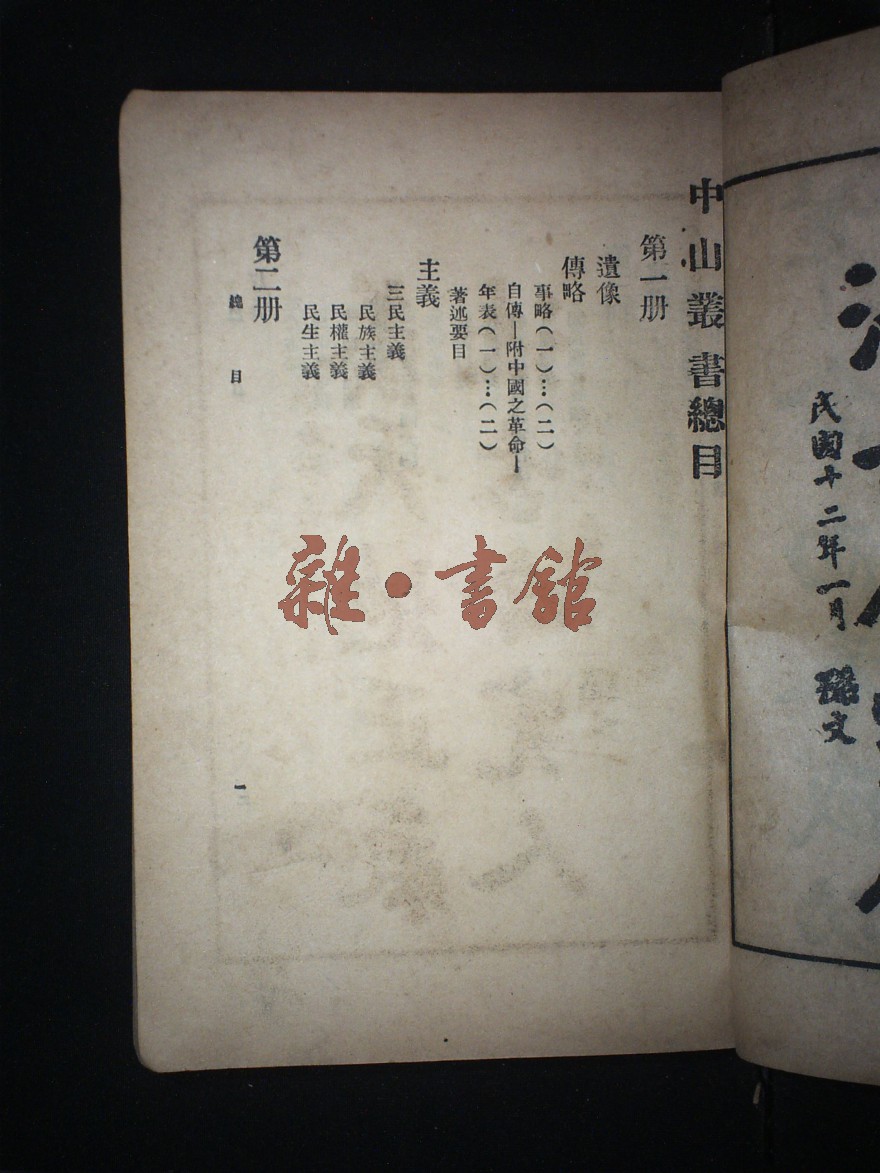 民國十二年一月 孫文
中山叢書總目
第一册
遺像
傳略
事略(一)…(二)
自傳—附中國之革命—
年表(一)…(二)
著述要目
主義
三民主義
民族主義
民權主義
民生主義
第二册
總目
一
雜·書館